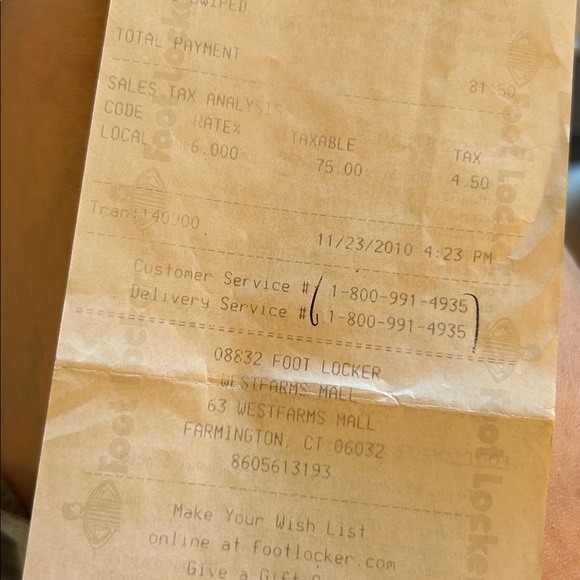 SWIPED
TOTAL PAYMENT 81.50
SALES TAX ANALYSIS
CODE RATE% TAXABLE TAX
LOCAL 6.000 75.00 4.50
Tran:140900 11/23/2010 4:23 PM
Customer Service # 1-800-991-4935
Delivery Service # 1-800-991-4935
08832 FOOT LOCKER
WESTFARMS MALL
63 WESTFARMS MALL
FARMINGTON, CT 06032
8605613193
Make Your Wish List
online at footlocker.com
Give a Gift
Foot Locker
Foot Locker
Foot Locker
Foot Locker